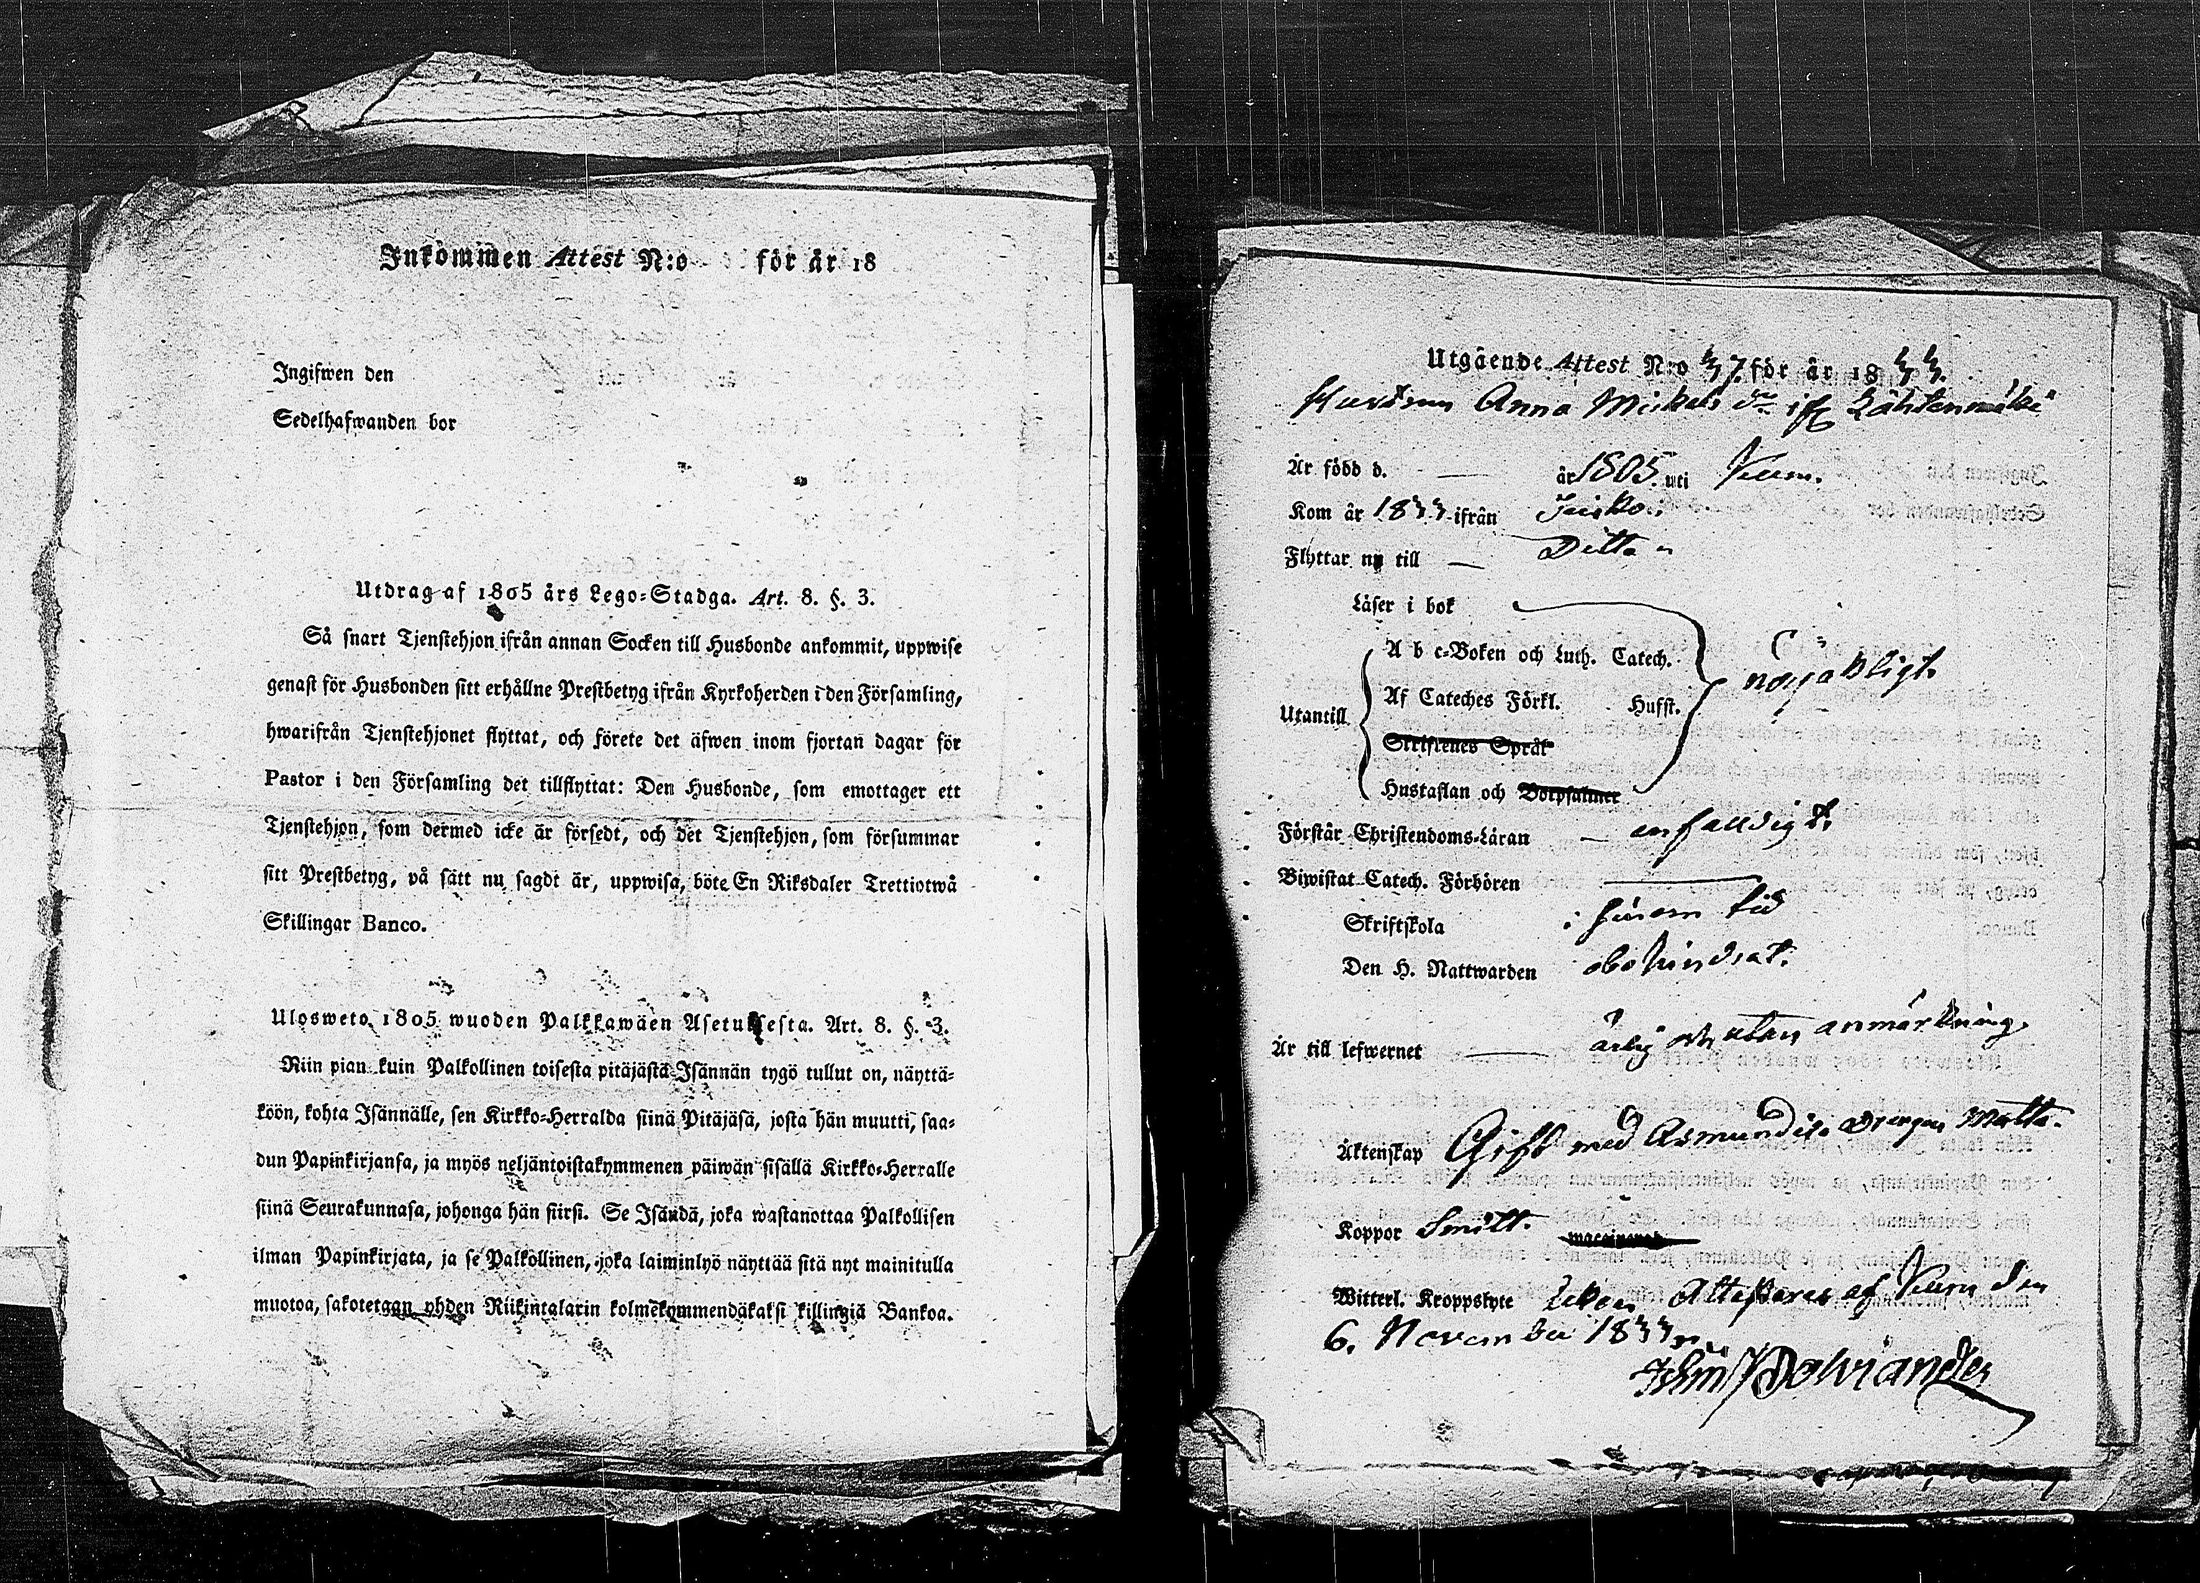 Inkommen Attest N:o för år 18
Ingifwen den
Sedelhafwanden bor
Utdrag af 1805 års Lego-Stadga. Art. 8. §. 3.
Så snart Tjenstehjon ifrån annan Socken till Husbonde ankommit, uppwise
genast för Husbonden sitt erhållne Prestbetyg ifrån Kyrkoherden i den Församling,
hwarifrån Tjenstehjonet flyttat, och förete det äfwen inom fjortan dagar för
Pastor i den Församling det tillflyttat: Den Husbonde, som emottager ett
Tjenstehjon, som dermed icke är försedt, och det Tjenstehjon, som försummar
sitt Prestbetyg, på sätt nu sagdt är, uppwisa, böte En Riksdaler Trettiotwå
Skillingar Banco.
Ulosweto 1805 wuoden Palkkawäen Asetuksesta. Art. 8. §. 3.
Niin pian kuin Palkollinen toisesta pitäjästä Isännän tygö tullut on, näyttä-
köön, kohta Isännälle, sen Kirkko-Herralda siinä Pitäjäsä, josta hän muutti, saa-
dun Papinkirjansa, ja myös neljäntoistakymmenen päiwän sisällä Kirkko-Herralle
siinä Seurakunnasa, johonga hän siirsi. Se Isändä, joka wastanottaa Palkollisen
ilman Papinkirjata, ja se Palkollinen, joka laiminlyö näyttää sitä nyt mainitulla
muotoa, sakotetaan yhden Riikintalarin kolmekymmendäkaksi killingiä Bankoa.
Utgående Attest N:o 47. för år 1844.
Hustrun Anna Mickels dr ifr Lähtenmäki
Är född d. — år 1805. uti Keum.
Kom år 1844 ifrån
Flyttar nu till — Ditto
Läser i bok
A b c-Boken och Luth. Catech.
Af Cateches Förkl. Husst. nöjaktligt.
Utantill
Skriftenes Språk
Hustaflan och Botpsalmer
Förstår Christendoms-Läran — enfalldigt.
Biwistat Catech. Förhören
Skriftskola i sinom tid
Den H. Nattwarden obehindrat.
Är till lefwernet — ärlig och utan anmärkning.
Äktenskap Gift med Asmundila Drengen Matts.
Koppor Smitt.
Witterl. Kroppslyte Utan Attesteras af Keum den
6. November 1844